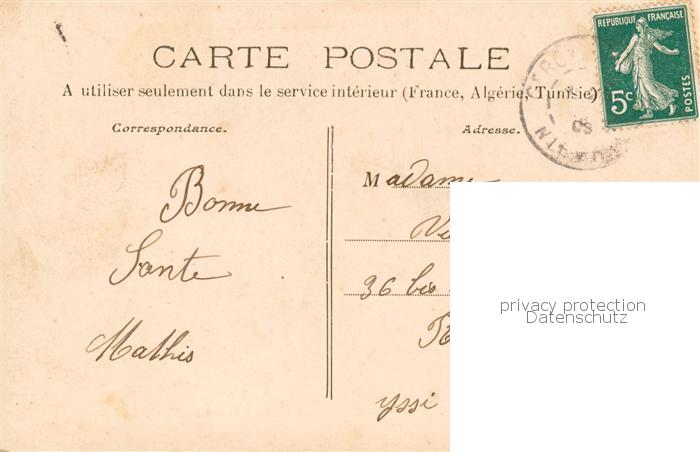 REPUBLIQUE FRANÇAISE
5c
POSTES
CARTE POSTALE
A utiliser seulement dans le service intérieur (France, Algérie, Tunisie)
Correspondance.
Bonne
Sante
Mathis
Adresse.
Madame
36 bis
yssi
privacy protection
Datenschutz